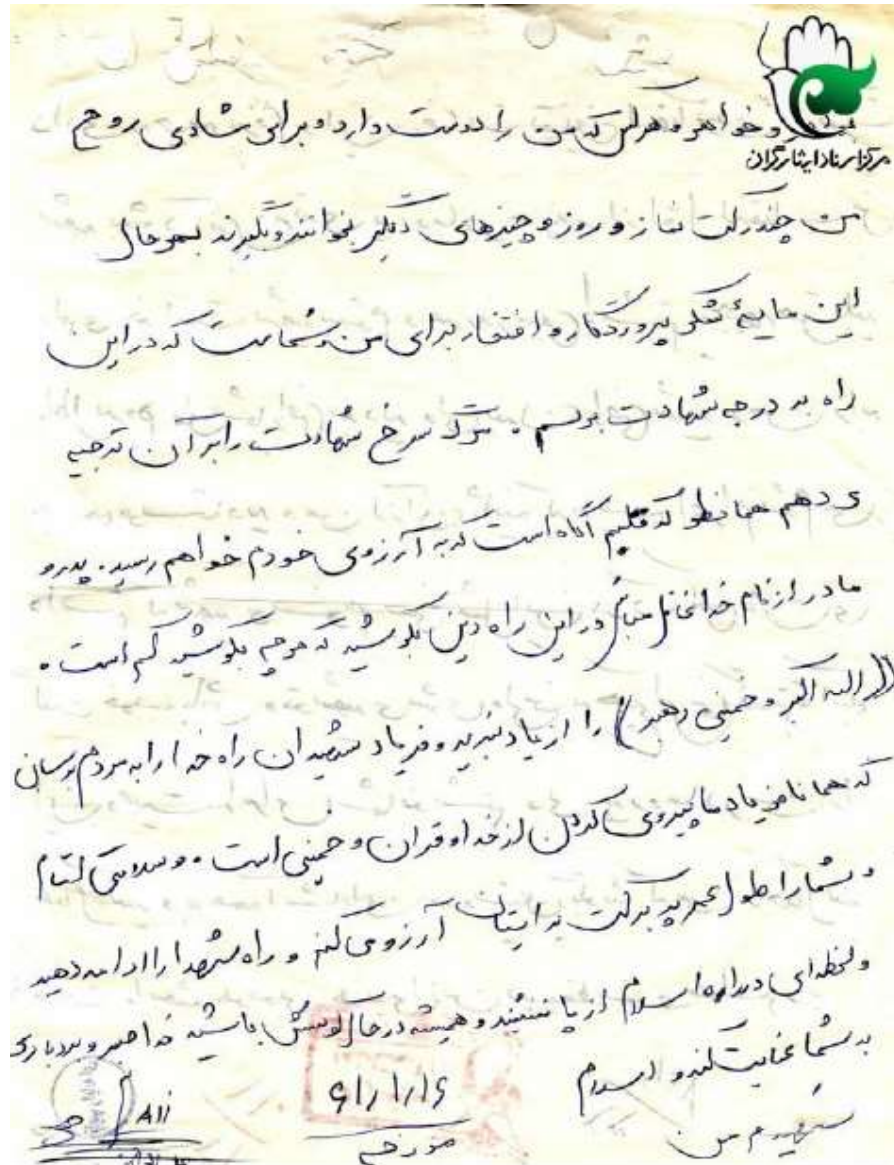 مرکز اسناد ایثارگران
و خواهر و هر کس که من را دوست دارد و برای شادی روح
من چند رکعت نماز و روزه و چیزهای دیگر بخوانند و بگیرند بهر حال
این مایهٔ تشکر پروردگار و افتخار برای من و شماست که در این
راه به درجه شهادت برسم. مرگ سرخ شهادت را بر آن ترجیه
می دهم همانطو که قلبم آگاه است که به آرزوی خودم خواهم رسید. پدر و
مادر از نام خدا غافل مباش در این راه دین بکوشید که هرچه بکوشید کم است.
((الله اکبر و خمینی رهبر)) را از یاد نبرید و فریاد شهیدان راه خدا را به مردم برسان
که همانا فریاد ما پیروی کردن از خدا و قران و خمینی است. و سلامتی
و شما را طول عمر پر برکت به ایشان آرزو می کنم و راه شهدا را ادامه دهید
و لحظه ای در راه اسلام از پا ننشیند و همیشه در حال کوشش باشید خدا صبر و بردباری
به شما عنایت کند و السلام
۶۱/۱/۱۶
مورخه
Ali